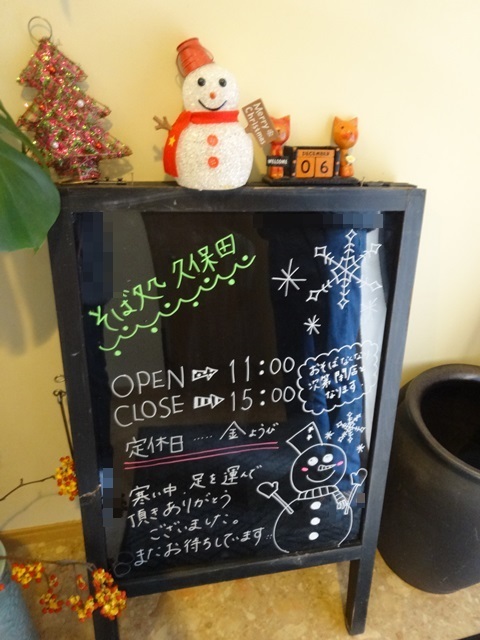 Merry
Christmas
WELCOME
DECEMBER
06
そば処 久保田
OPEN ⇨ 11:00
CLOSE ⇨ 15:00
おそばなくなり
次第閉店と
なります
定休日 ····· 金ようび
寒い中、足を運んで
頂きありがとう
ございました。
またお待ちしています